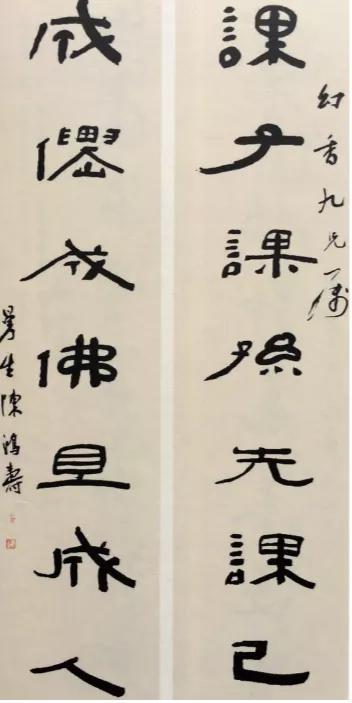 香九兄屬
課子課孫先課己
成僊成佛且成人
曼生陳鴻壽